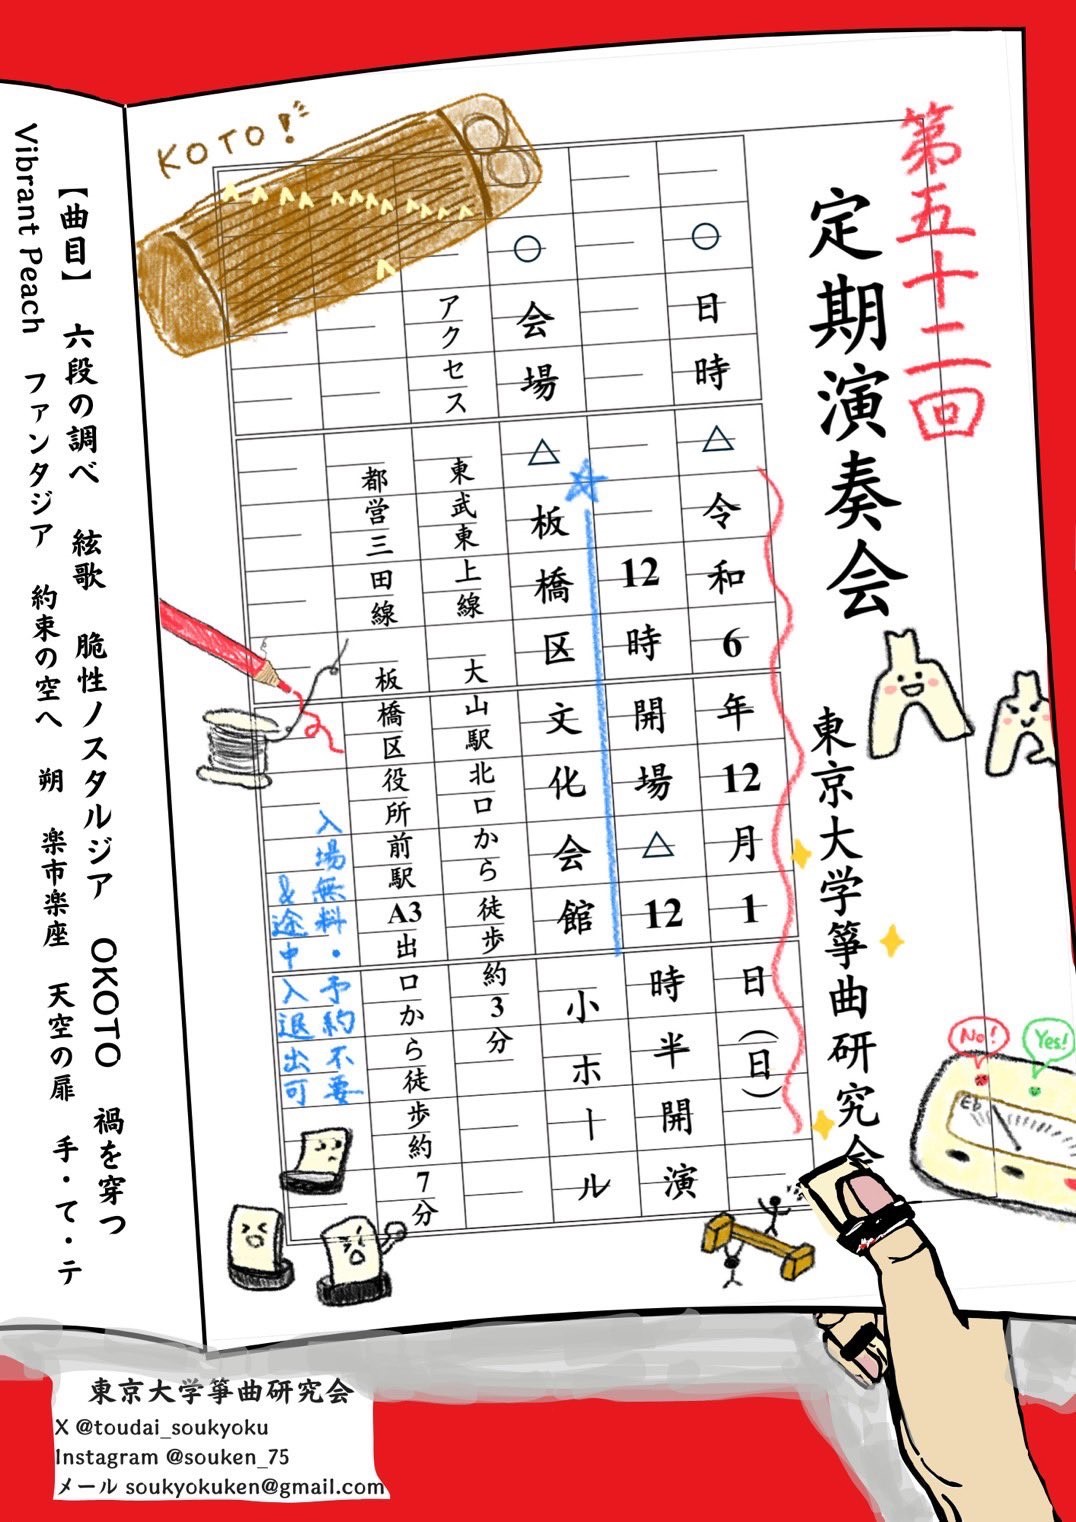 第五十二回
定期演奏会
東京大学箏曲研究会
○日時△令和6年12月1日(日)
12時開場△12時半開演
○会場△板橋区文化会館小ホール
アクセス 東武東上線 大山駅北口から徒歩約3分
都営三田線 板橋区役所前駅A3出口から徒歩約7分
入場無料・予約不要
&途中入退出可
KOTO!
No!
Yes!
Eb
【曲目】 六段の調べ 絃歌 脆性ノスタルジア OKOTO 禍を穿つ
Vibrant Peach ファンタジア 約束の空へ 朔 楽市楽座 天空の扉 手・て・テ
東京大学箏曲研究会
X @toudai_soukyoku
Instagram @souken_75
メール soukyokuken@gmail.com